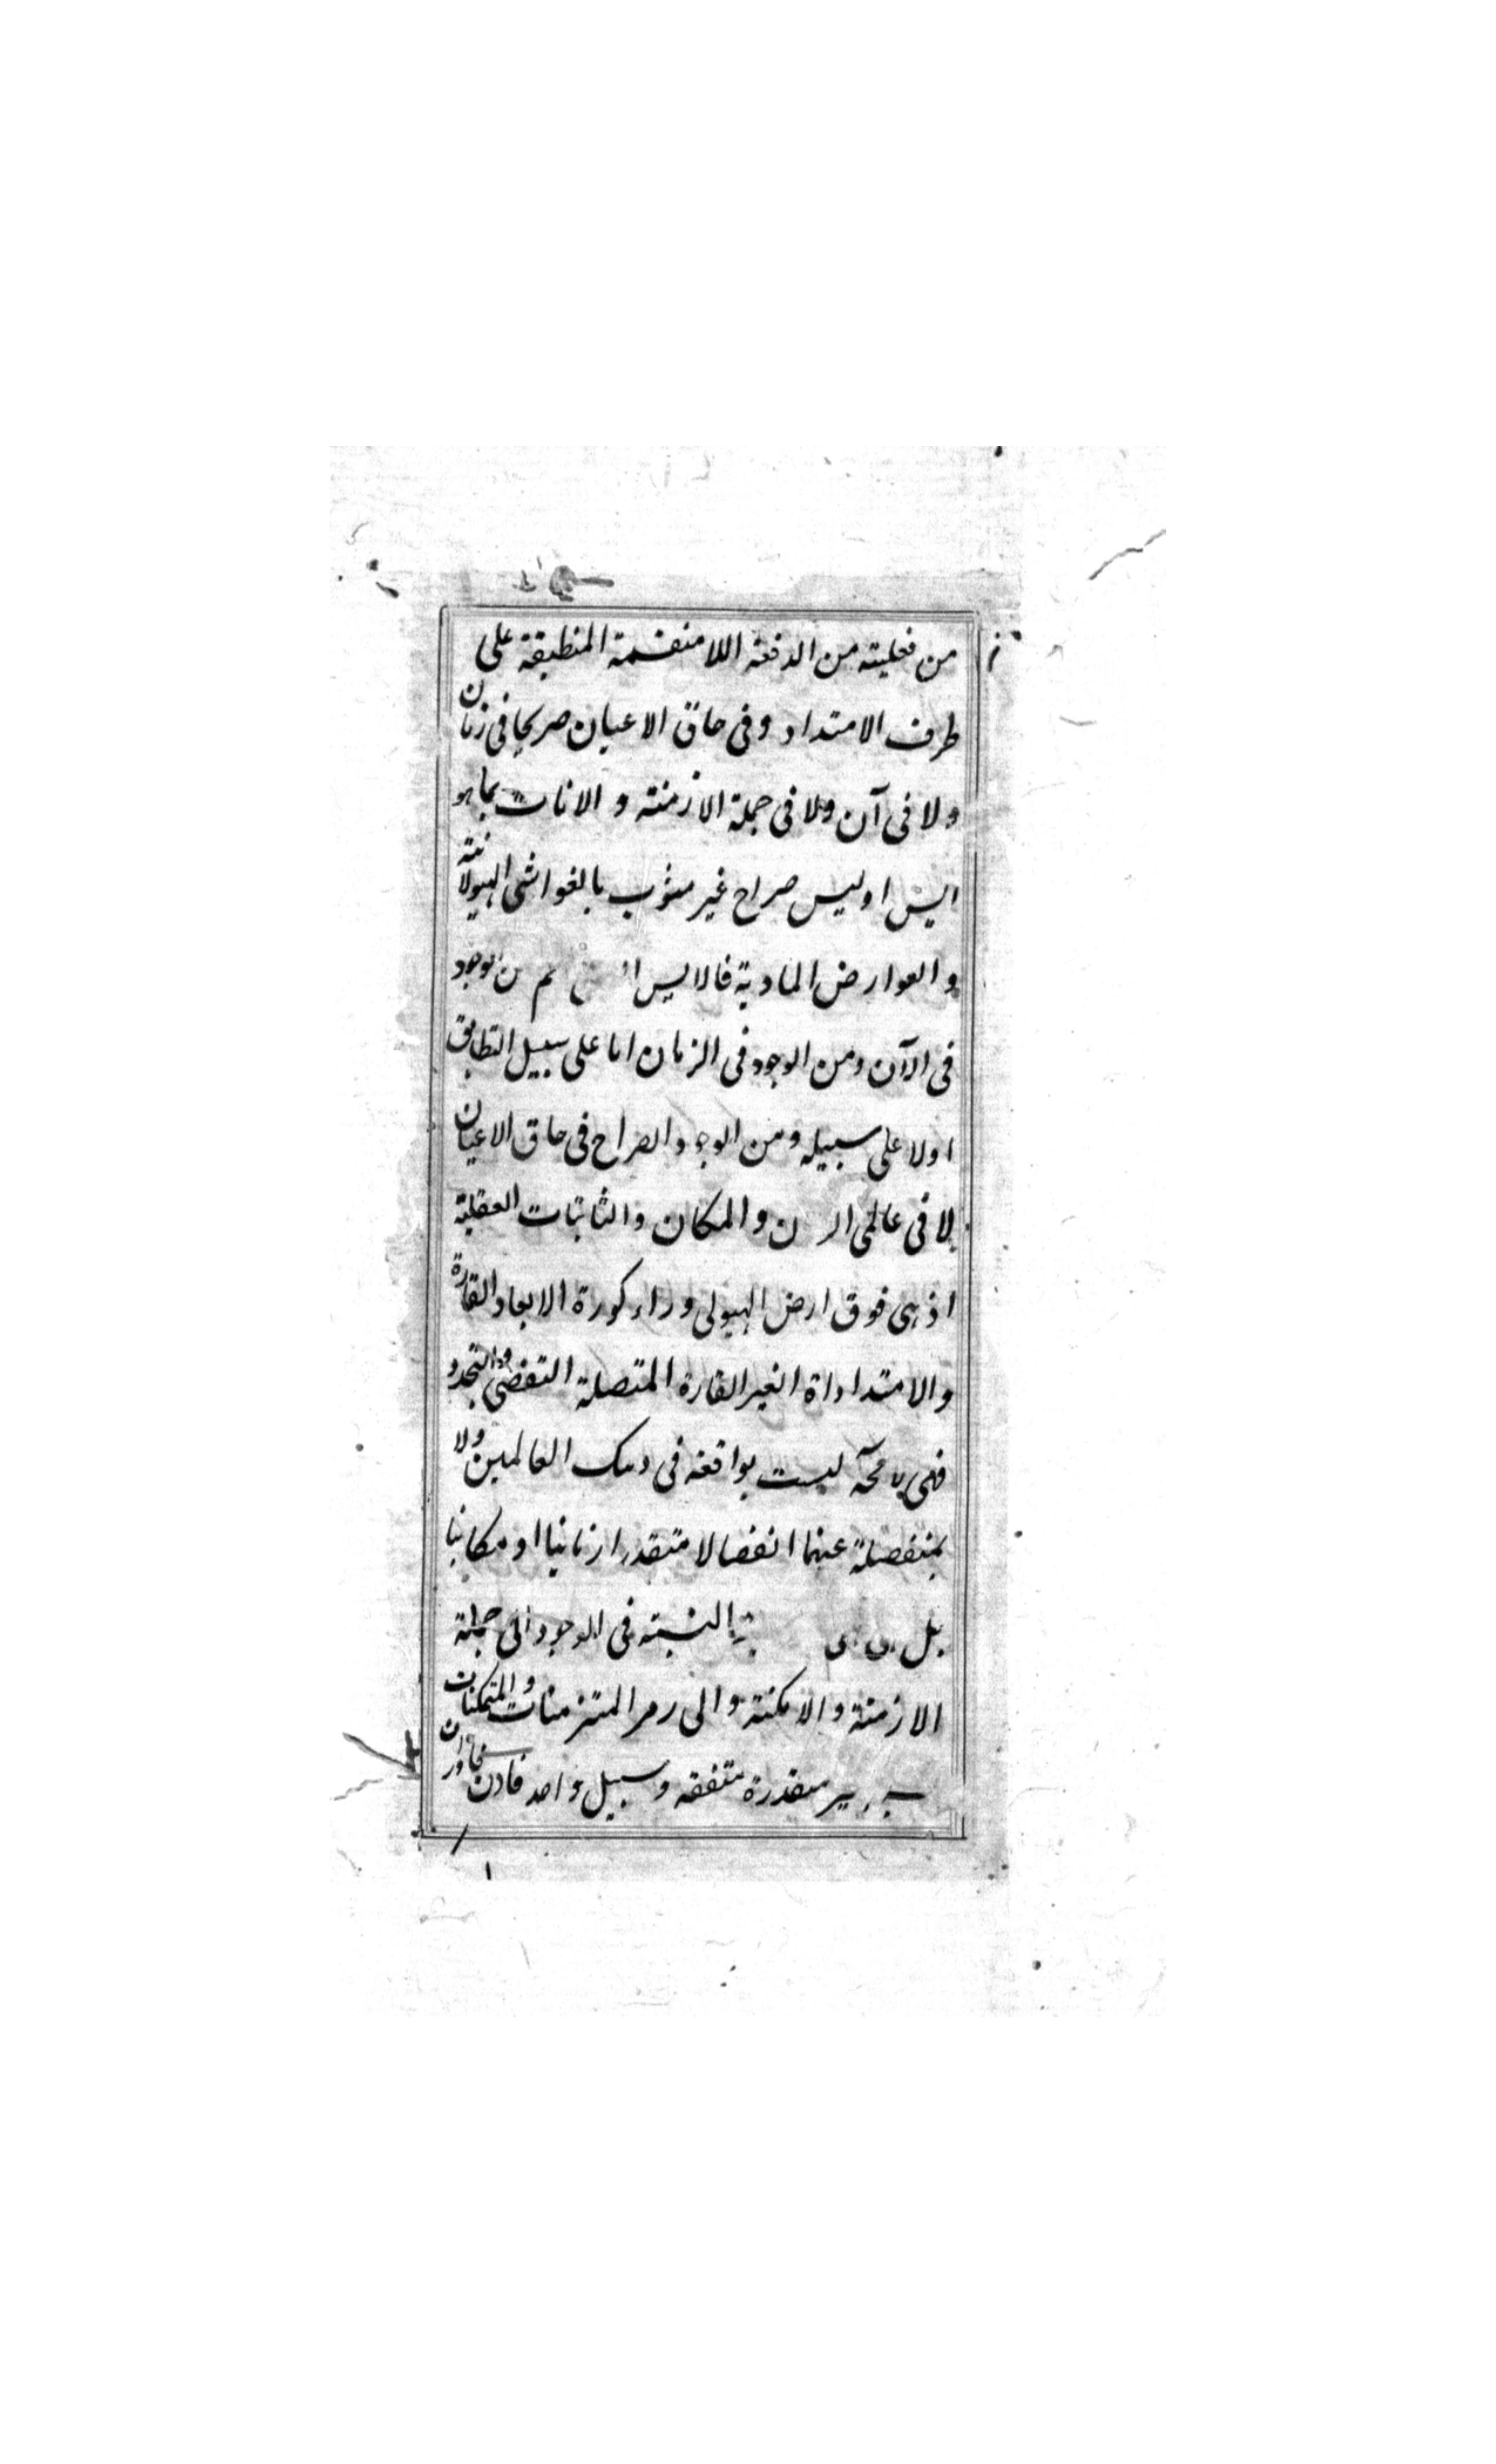 من فعليته من الدفعة اللا منقسمة المنطبقة على
طرف الامتداد وفى حاق الاعيان صريحا فى زمان
ولا فى آن ولا فى جملة الازمنة و الانات بما هو
ايس او ليس صراح غير مشوب بالغواشى الهيولانية
والعوارض المادية فالايس من الوجود
فى الآن ومن الوجود فى الزمان اما على سبيل التطابق
اولا على سبيله ومن الوجود الصراح فى حاق الاعيان
لا فى عالمى ن والمكان والثابتات العقلية
اذ هى فوق ارض الهيولى وراء كورة الابعاد القارة
والامتداداة الغير القارة المتصلة التقضى والتجدد
فهى ليست بواقعة فى العالمين ولا
بمنفصلة عنهما انفصالا متقدرا زمانيا او مكانيا
بل النسبة فى الوجود الى جملة
الازمنة والامكنة والى زمر المتزمنات والمتمكنات
متقدرة متفقة وسبيل واحد فاذن